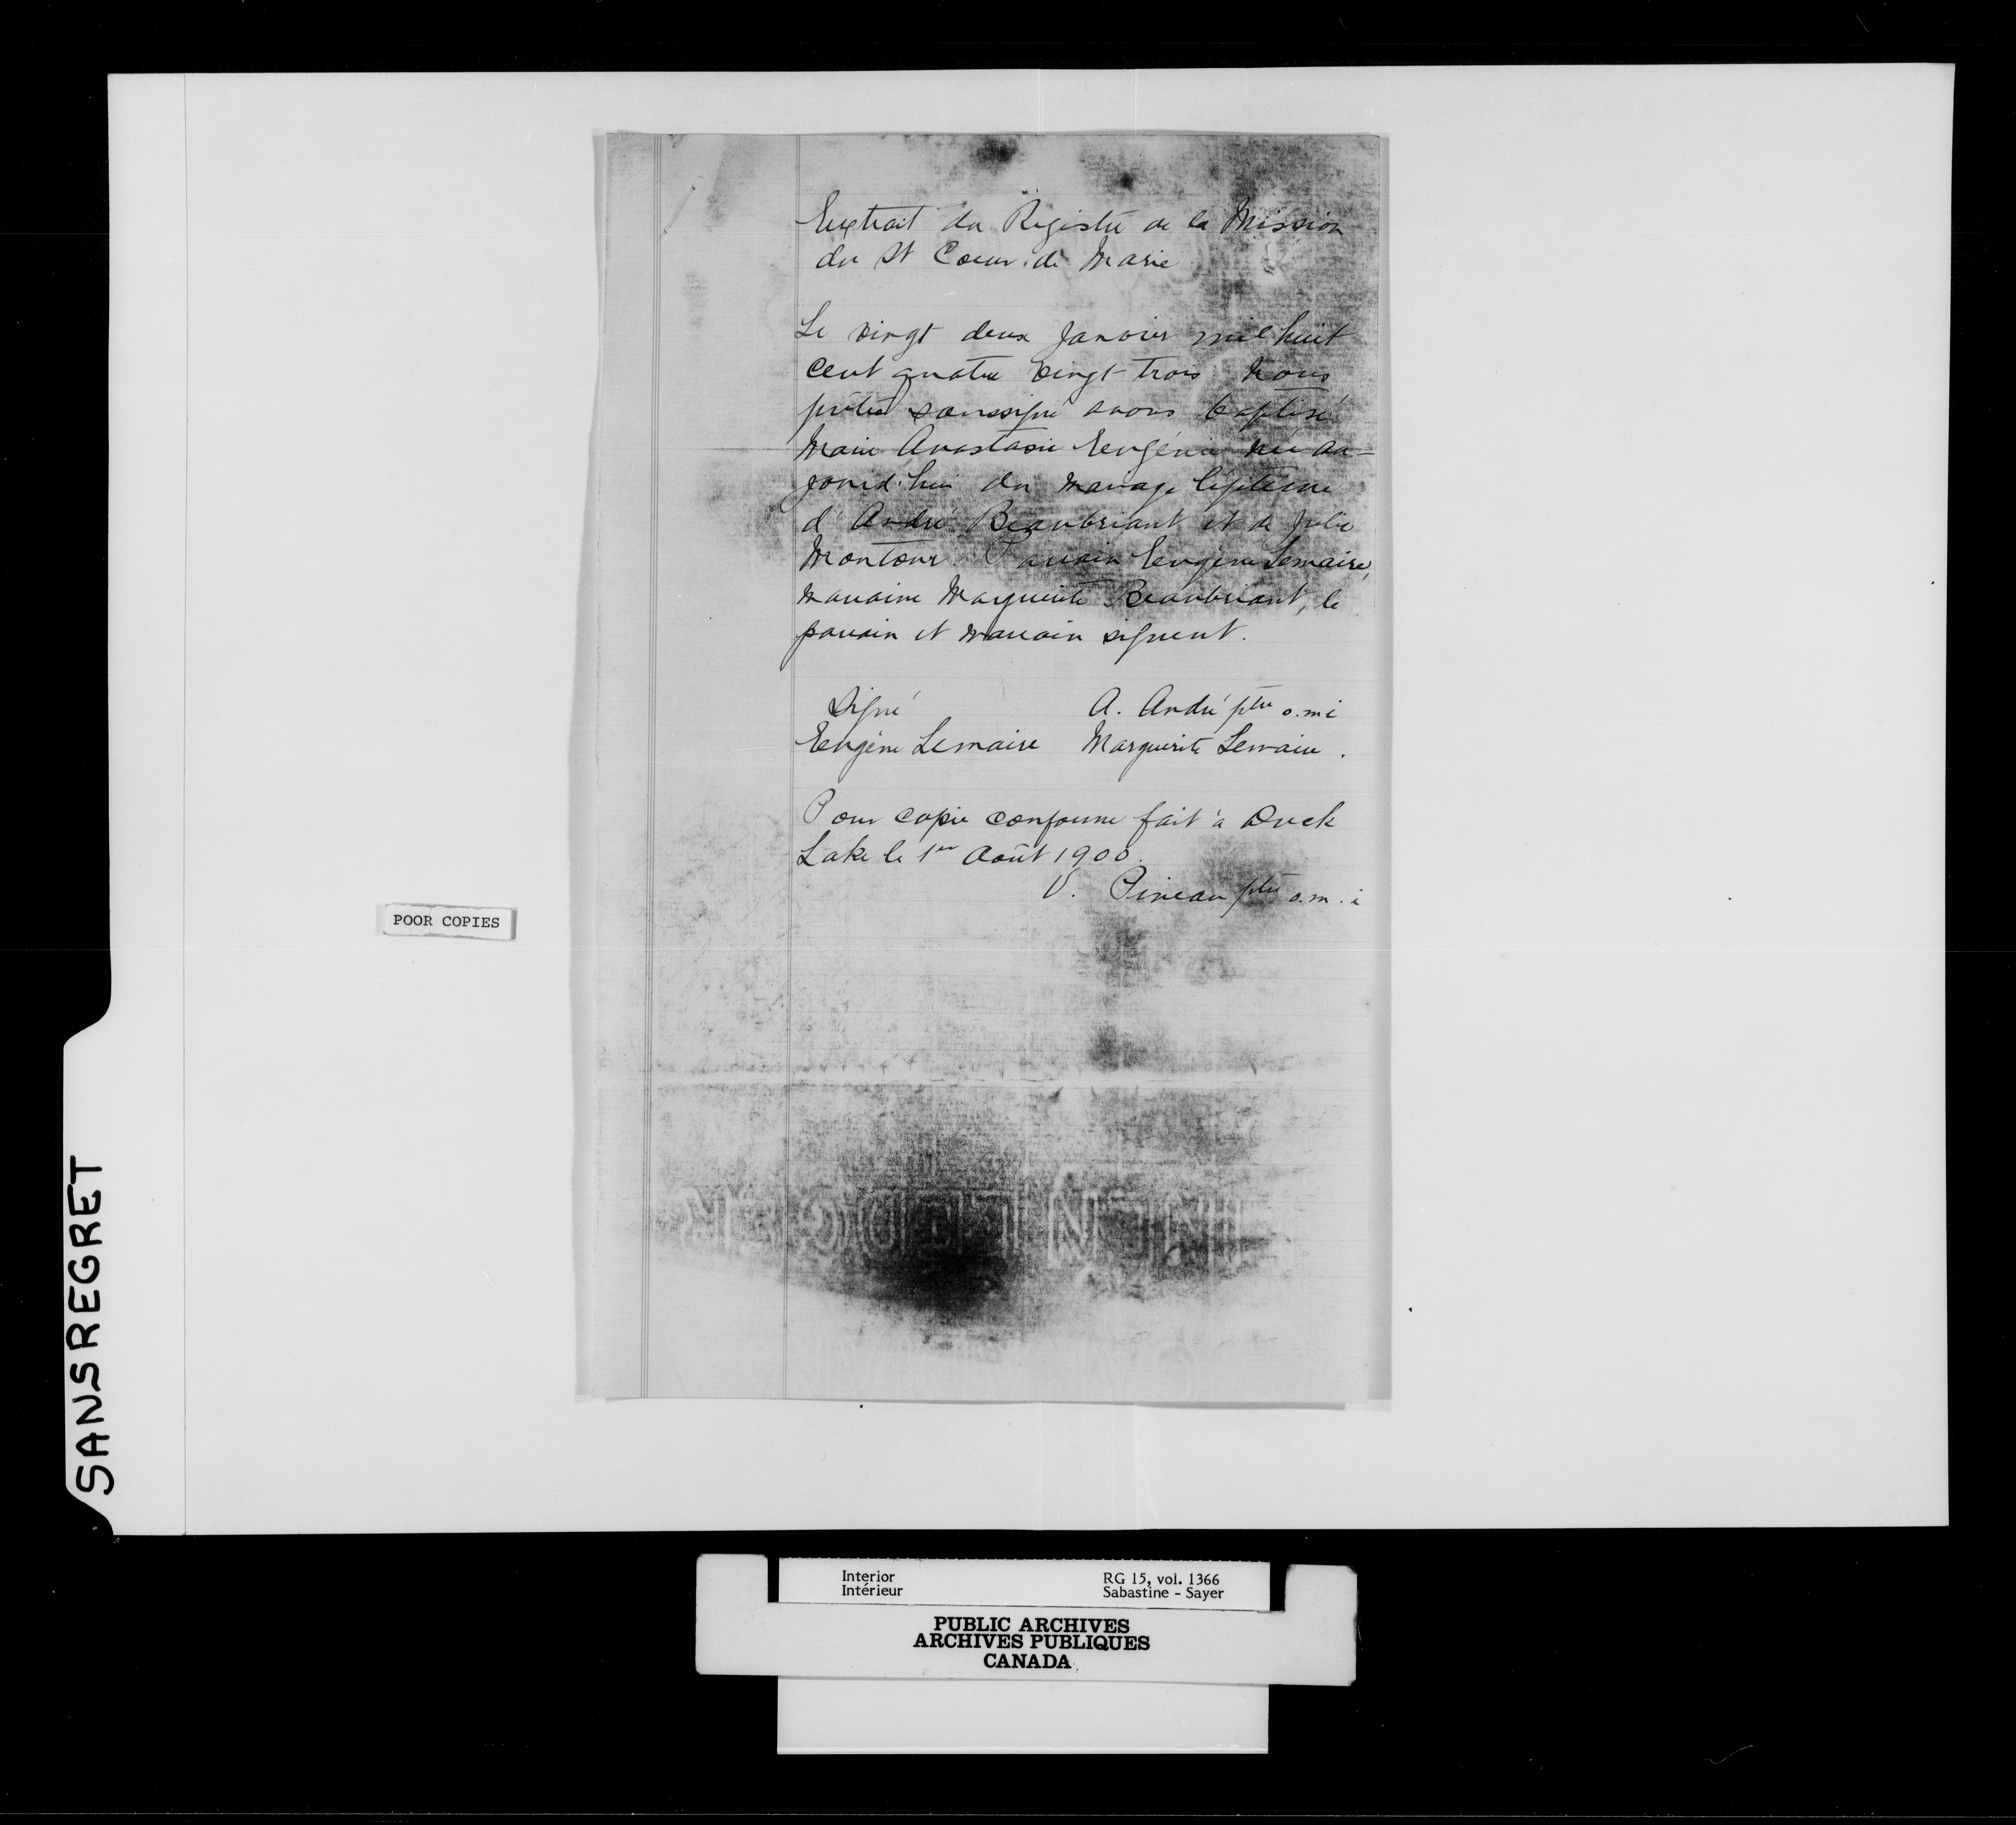 Extrait du Registre de la Mission
du St Coeur de Marie
Le vingt deux Janvier mil huit
cent quatre vingt-trois Nous
prêtre soussigné avons baptisé
Marie Anastasie Eugénie née au-
jourd'hui du mariage légitime
d'André Beaubriant et de Julie
Montour. Parrain Eugène Lemaire,
marraine Marguerite Beaubriant, le
parrain et marraine signent.
Signé A. André ptre o.m.i
Eugène Lemaire Marguerite Lemaire.
Pour copie conforme fait à Duck
Lake le 1er Août 1900.
V. Pineau ptre o.m.i
POOR COPIES
SANSREGRET
Interior RG 15, vol. 1366
Intérieur Sabastine - Sayer
PUBLIC ARCHIVES
ARCHIVES PUBLIQUES
CANADA